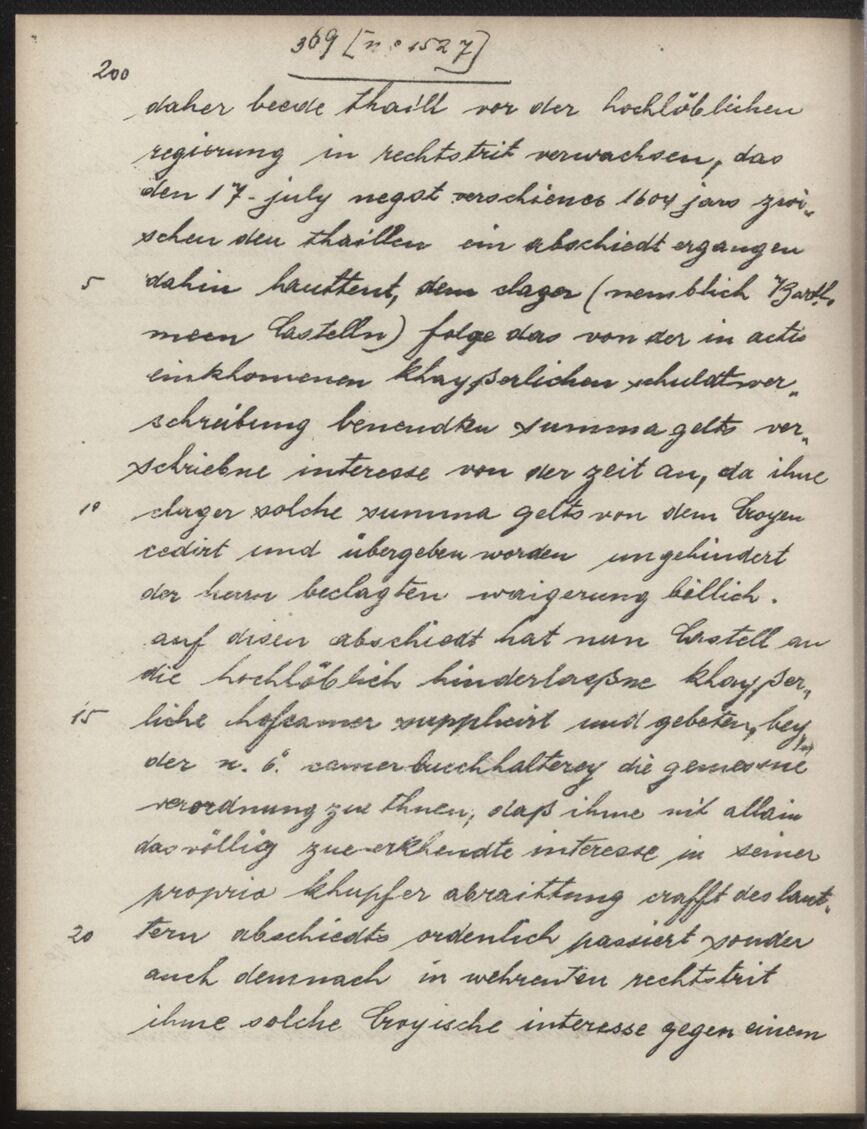 369 [n° 1527]
200
daher beede thaill vor der hochlöblichen
regierung in rechtstrit verwachsen, das
den 17. july negst verschienes 1604 jars zwi„
schen den thaillen ein abschiedt ergangen
5 dahin lauttent, dem clager (nemblich Bartl„
meen Castelln) folge das von der in actis
einkhomenen khayßerlichen schuldtver„
schreibung benendten summa gelts ver„
schriebne interesse von der zeit an, da ihme
10 clager solche summa gelts von dem Croyen
cedirt und übergeben worden ungehindert
der herrn beclagten waigerung billich.
auf disen abschiedt hat nun Castell an
die hochlöblich hinderlaeßne khayßer„
15 liche hofcamer supplicirt und gebeten, bey
der n. ö. camerbuechhalterey die gemessne
verordnung zue thuen, daß ihme nit allain
das völlig zue erkhendte interesse in seiner
proprio khupfer abraittung crafft des laut„
20 tern abschiedts ordenlich passiert sonder
auch demnach in wehrenten rechtstrit
ihme solche Croyische interesse gegen einem